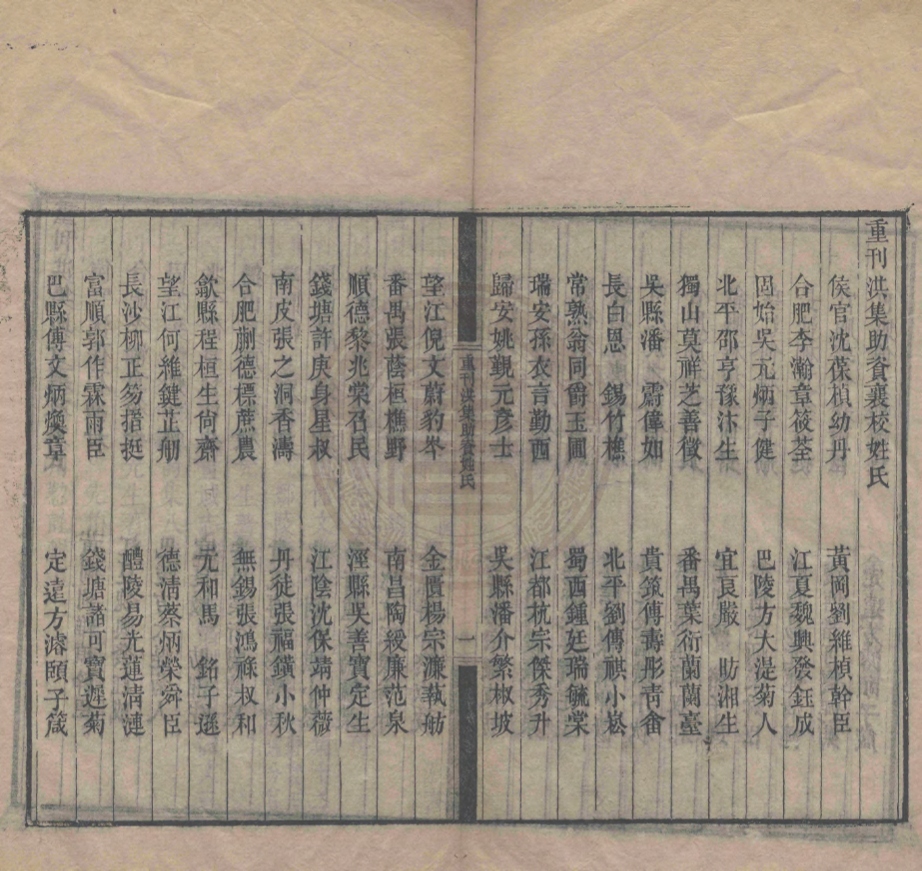 重刊洪集助資襄校姓氏
侯官沈葆楨幼丹　黃岡劉維楨幹臣
合肥李瀚章筱荃　江夏魏興發鈺成
固始吳元炳子健　巴陵方大湜菊人
北平邵亨豫汴生　宜良嚴　昉湘生
獨山莫祥芝善徵　番禺葉衍蘭蘭臺
吳縣潘　霨偉如　貴筑傅壽彤青畬
長白恩　錫竹樵　北平劉傳祺小崧
常熟翁同爵玉圃　蜀西鍾廷瑞毓棠
瑞安孫衣言勤西　江都杭宗傑秀升
歸安姚覲元彥士　吳縣潘介繁椒坡
重刊洪集助資姓氏　一
望江倪文蔚豹岑　金匱楊宗濂藝舫
番禺張蔭桓樵野　南昌陶緩廉范泉
順德黎兆棠召民　涇縣吳善寶定生
錢塘許庚身星叔　江陰沈保靖仲薇
南皮張之洞香濤　丹徒張福鐄小秋
合肥蒯德標蔗農　無錫張鴻祿叔和
歙縣程桓生尙齋　元和馬　銘子遜
望江何維鍵芷舠　德淸蔡炳榮舜臣
長沙柳正笏搢挺　醴陵易光蓮淸漣
富順郭作霖雨臣　錢塘諸可寶遲菊
巴縣傅文炳燠章　定遠方濬頤子箴